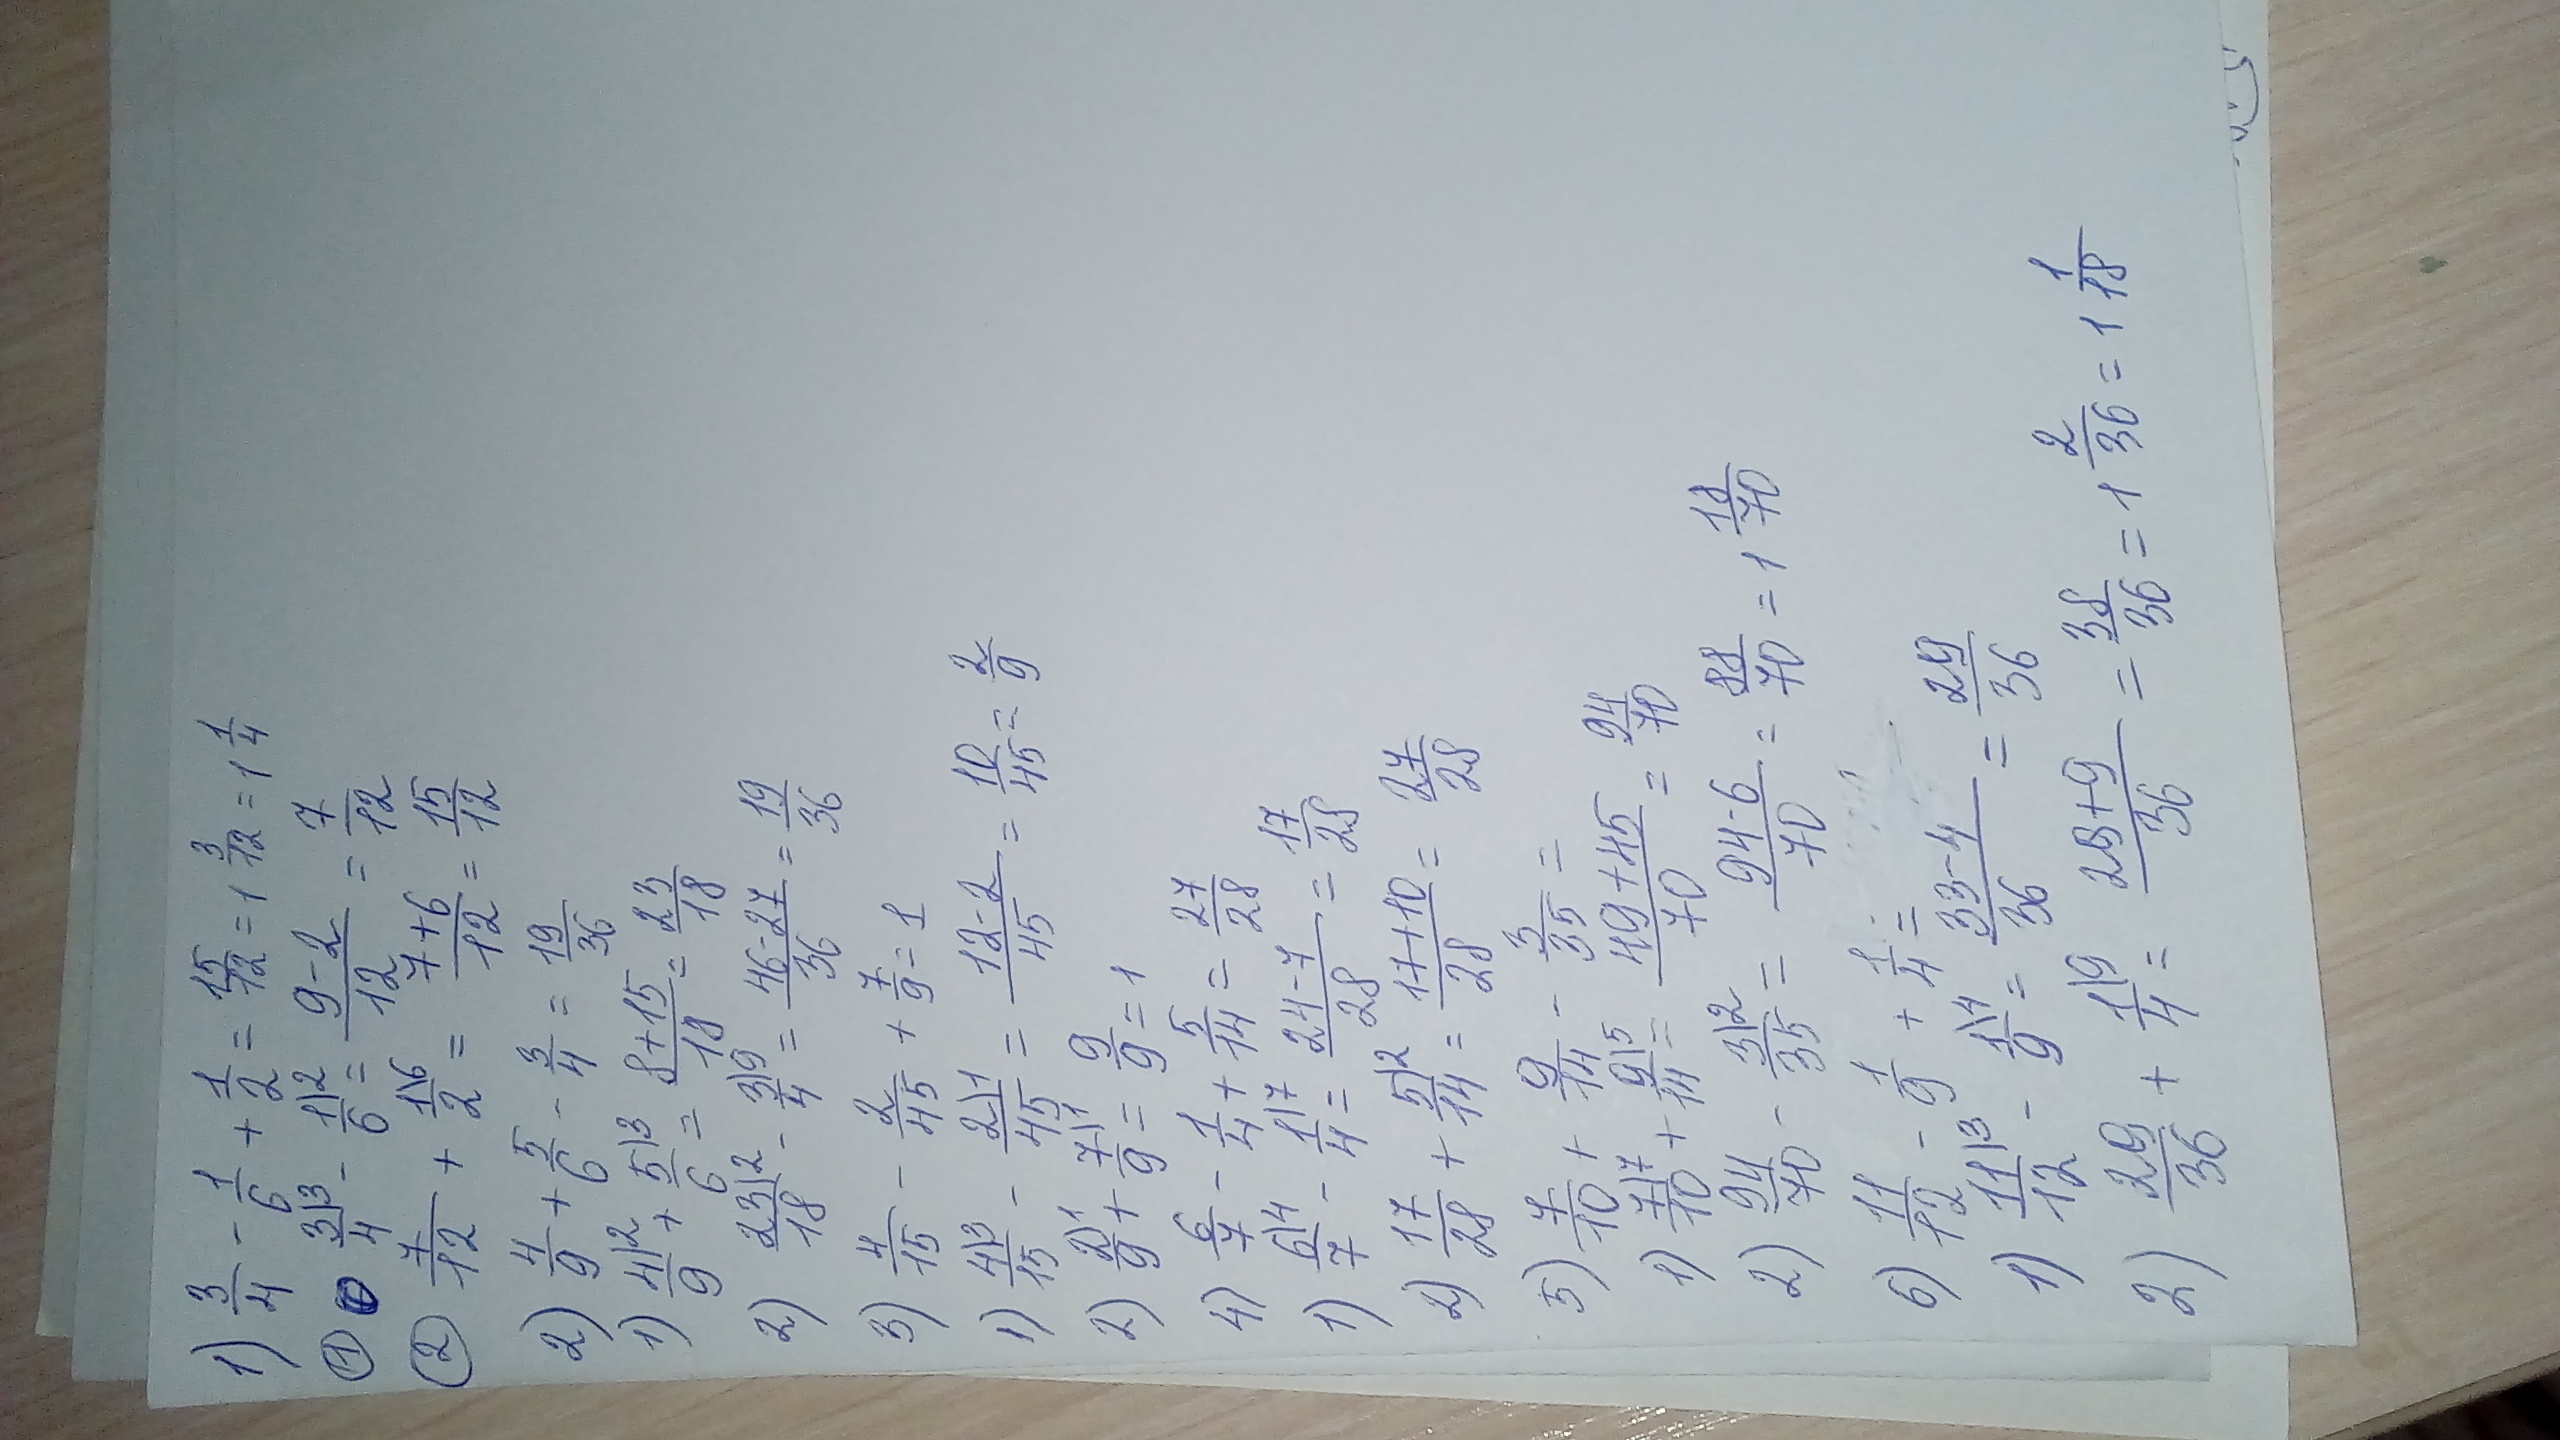 1) 3/4 - 1/6 + 1/2 = 15/12 = 1 3/12 = 1 1/4
① 3|3/4 - 1|2/6 = 9-2/12 = 7/12
② 7/12 + 1|6/2 = 7+6/12 = 15/12
2) 4/9 + 5/6 - 3/4 = 19/36
1) 4|2/9 + 5|3/6 = 8+15/18 = 23/18
2) 23|2/18 - 3|9/4 = 46-27/36 = 19/36
3) 4/15 - 2/45 + 7/9 = 1
1) 4|3/15 - 2|1/45 = 12-2/45 = 10/45 = 2/9
2) 2|1/9 + 7|1/9 = 9/9 = 1
4) 6/7 - 1/4 + 5/14 = 27/28
1) 6|4/7 - 1|7/4 = 24-7/28 = 17/28
2) 17/28 + 5|2/14 = 17+10/28 = 27/28
5) 7/10 + 9/14 - 3/35 =
1) 7|7/10 + 9|5/14 = 49+45/70 = 94/70
2) 94/70 - 3|2/35 = 94-6/70 = 88/70 = 1 18/70
6) 11/12 - 1/9 + 1/4 =
1) 11|3/12 - 1|4/9 = 33-4/36 = 29/36
2) 29/36 + 1|9/4 = 29+9/36 = 38/36 = 1 2/36 = 1 1/18